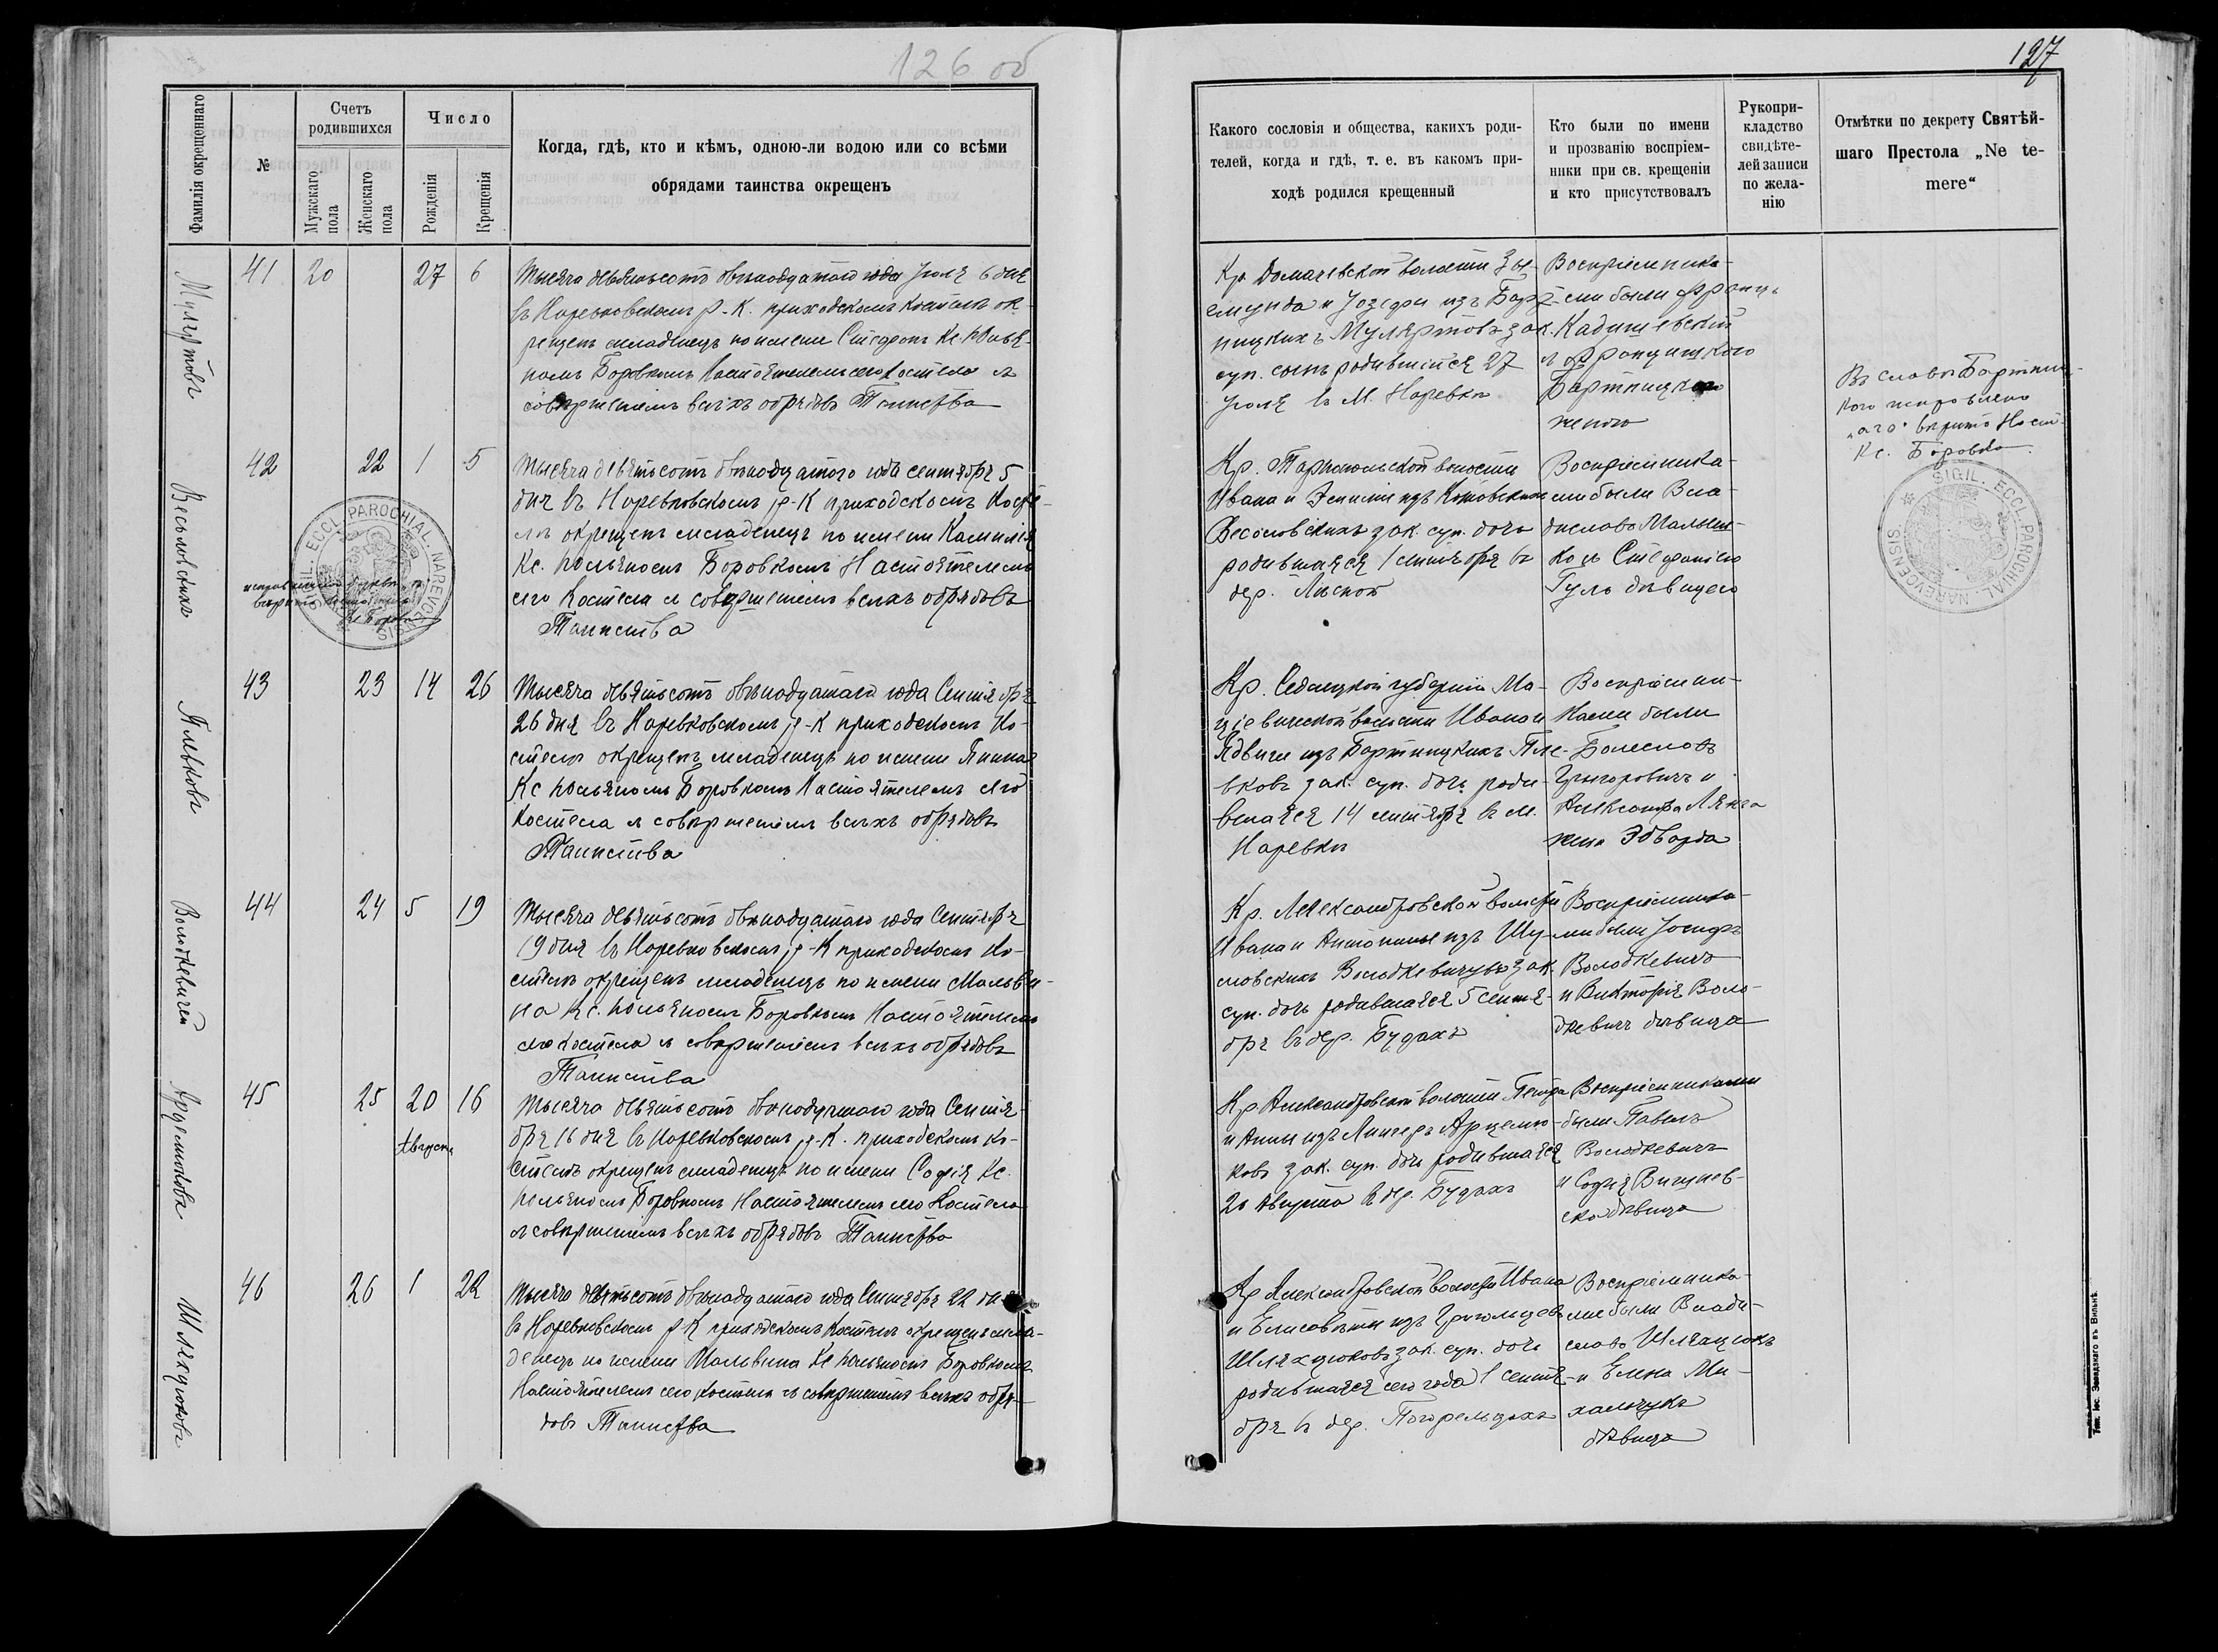 126 об
Фамилія окрещеннаго
№
Счетъ родившихся
Мужскаго пола
Женскаго пола
Число
Рожденія
Крещенія
Когда, гдѣ, кто и кѣмъ, одною-ли водою или со всѣми
обрядами таинства окрещенъ
41 20 27 6
Тысяча девятьсотъ двѣнадцатаго года Іюля 6 дня
въ Наревковскомъ р.-К. приходскомъ костелѣ ок-
рещенъ младенецъ по имени Стефанъ Кс. Юлья-
номъ Боровкомъ Настоятелемъ сего Костела съ
совершеніемъ всѣхъ обрядовъ Таинства
Весоловскихъ
42 22 1 5
Тысяча девятьсотъ двѣнадцатаго года сентября 5
дня въ Наревковскомъ р-К приходскомъ Косте-
лѣ окрещенъ младенецъ по имени Камилія
Кс. Юльяномъ Боровкомъ Настоятелемъ
сего Костела съ совершеніемъ всѣхъ обрядовъ
Таинства
SIGIL. ECCL. PAROCHIAL. NAREVCENSIS
Плевковъ
43 23 14 26
Тысяча девятьсотъ двѣнадцатаго года Сентября
26 дня въ Наревковскомъ р-К приходскомъ Ко-
стелѣ окрещенъ младенецъ по имени Янина
Кс Юльяномъ Боровкомъ Настоятелемъ сего
Костела съ совершеніемъ всѣхъ обрядовъ
Таинства
Володкевичей
44 24 5 19
Тысяча девятьсотъ двѣнадцатаго года Сентября
19 дня въ Наревковскомъ р-К приходскомъ Ко-
стелѣ окрещенъ младенецъ по имени Мальви-
на Кс. Юльяномъ Боровкомъ Настоятелемъ
сего Костела съ совершеніемъ всѣхъ обрядовъ
Таинства
Арцемюковъ
45 25 20 16
Августа
Тысяча девятьсотъ двѣнадцатаго года Сентя-
бря 16 дня въ Наревковскомъ р-К. приходскомъ Ко-
стелѣ окрещенъ младенецъ по имени Софія Кс.
Юльяномъ Боровкомъ Настоятелемъ сего Костела
съ совершеніемъ всѣхъ обрядовъ Таинства
Шляхцюковъ
46 26 1 22
Тысяча девятьсотъ двѣнадцатаго года Сентября 22 дня
въ Наревковскомъ р К приходскомъ Костелѣ окрещенъ мла-
денецъ по имени Мальвина Кс Юльяномъ Боровкомъ
Настоятелемъ сего Костела съ совершеніемъ всѣхъ обря-
довъ Таинства
127
Какого сословія и общества, какихъ роди-
телей, когда и гдѣ, т. е. въ какомъ при-
ходѣ родился крещенный
Кто были по имени
и прозванію воспріем-
ники при св. крещеніи
и кто присутствовалъ
Рукопри-
кладство
свидѣте-
лей записи
по жела-
нію
Отмѣтки по декрету Святѣй-
шаго Престола „Ne te-
mere“
Кр. Домачевской волости Зы-
гмунда и Іозефы изъ Барт-
ницкихъ Муляртовъ зак.
суп. сынъ родившійся 27
Іюля въ М. Наревкѣ
Воспріемника-
ми были Францъ
Кадишевскій
и Францишкого
Бартницкаго
жена
Въ словѣ Бартниц-
кого исправлено
„аго“ вѣрить Наст.
Кс. Боровко
SIGIL. ECCL. PAROCHIAL. NAREVCENSIS
Кр. волости
Ивана и изъ
Весоловскихъ зак. суп. дочь
родившаяся 1 сентября въ
дер. Лѣсной
Воспріемника-
ми были Вла-
диславъ
съ Стефаніею
Гуль дѣвицею
Кр. Седлецкой губерніи Ма-
ціевичской волости Ивана и
Ядвиги изъ Бартницкихъ Пле-
вковъ зак. суп. дочь роди-
вшаяся 14 сентября въ М.
Наревкѣ
Воспріемни-
ками были
Болеславъ
Григоровичъ и
Александра
жена Эдварда
Кр. Александровской волости
Ивана и Антонины изъ Шу-
мовскихъ Володкевичувъ зак.
суп. дочь родившаяся 5 сентя-
бря въ дер. Будахъ
Воспріемника-
ми были Іосифъ
Володкевичъ
и Викторія Воло-
дкевичъ дѣвица
Кр. Александровской волости Петра
и Анны изъ Лингеръ Арцемю-
ковъ зак. суп. дочь родившаяся
20 Августа въ дер. Будахъ
Воспріемниками
были Павелъ
Володкевичъ
и Софія Вишнев-
ска дѣвица
Кр Александровской волости Ивана
и Елисаветы изъ
Шляхцюковъ зак. суп. дочь
родившаяся сего года 1 сентя-
бря въ дер. Погорельцахъ
Воспріемника-
ми были Влади-
славъ Шляхцюкъ
и Елена Ми-
хальчукъ
дѣвица
Тип. Іос. Завадзкаго въ Вильнѣ.